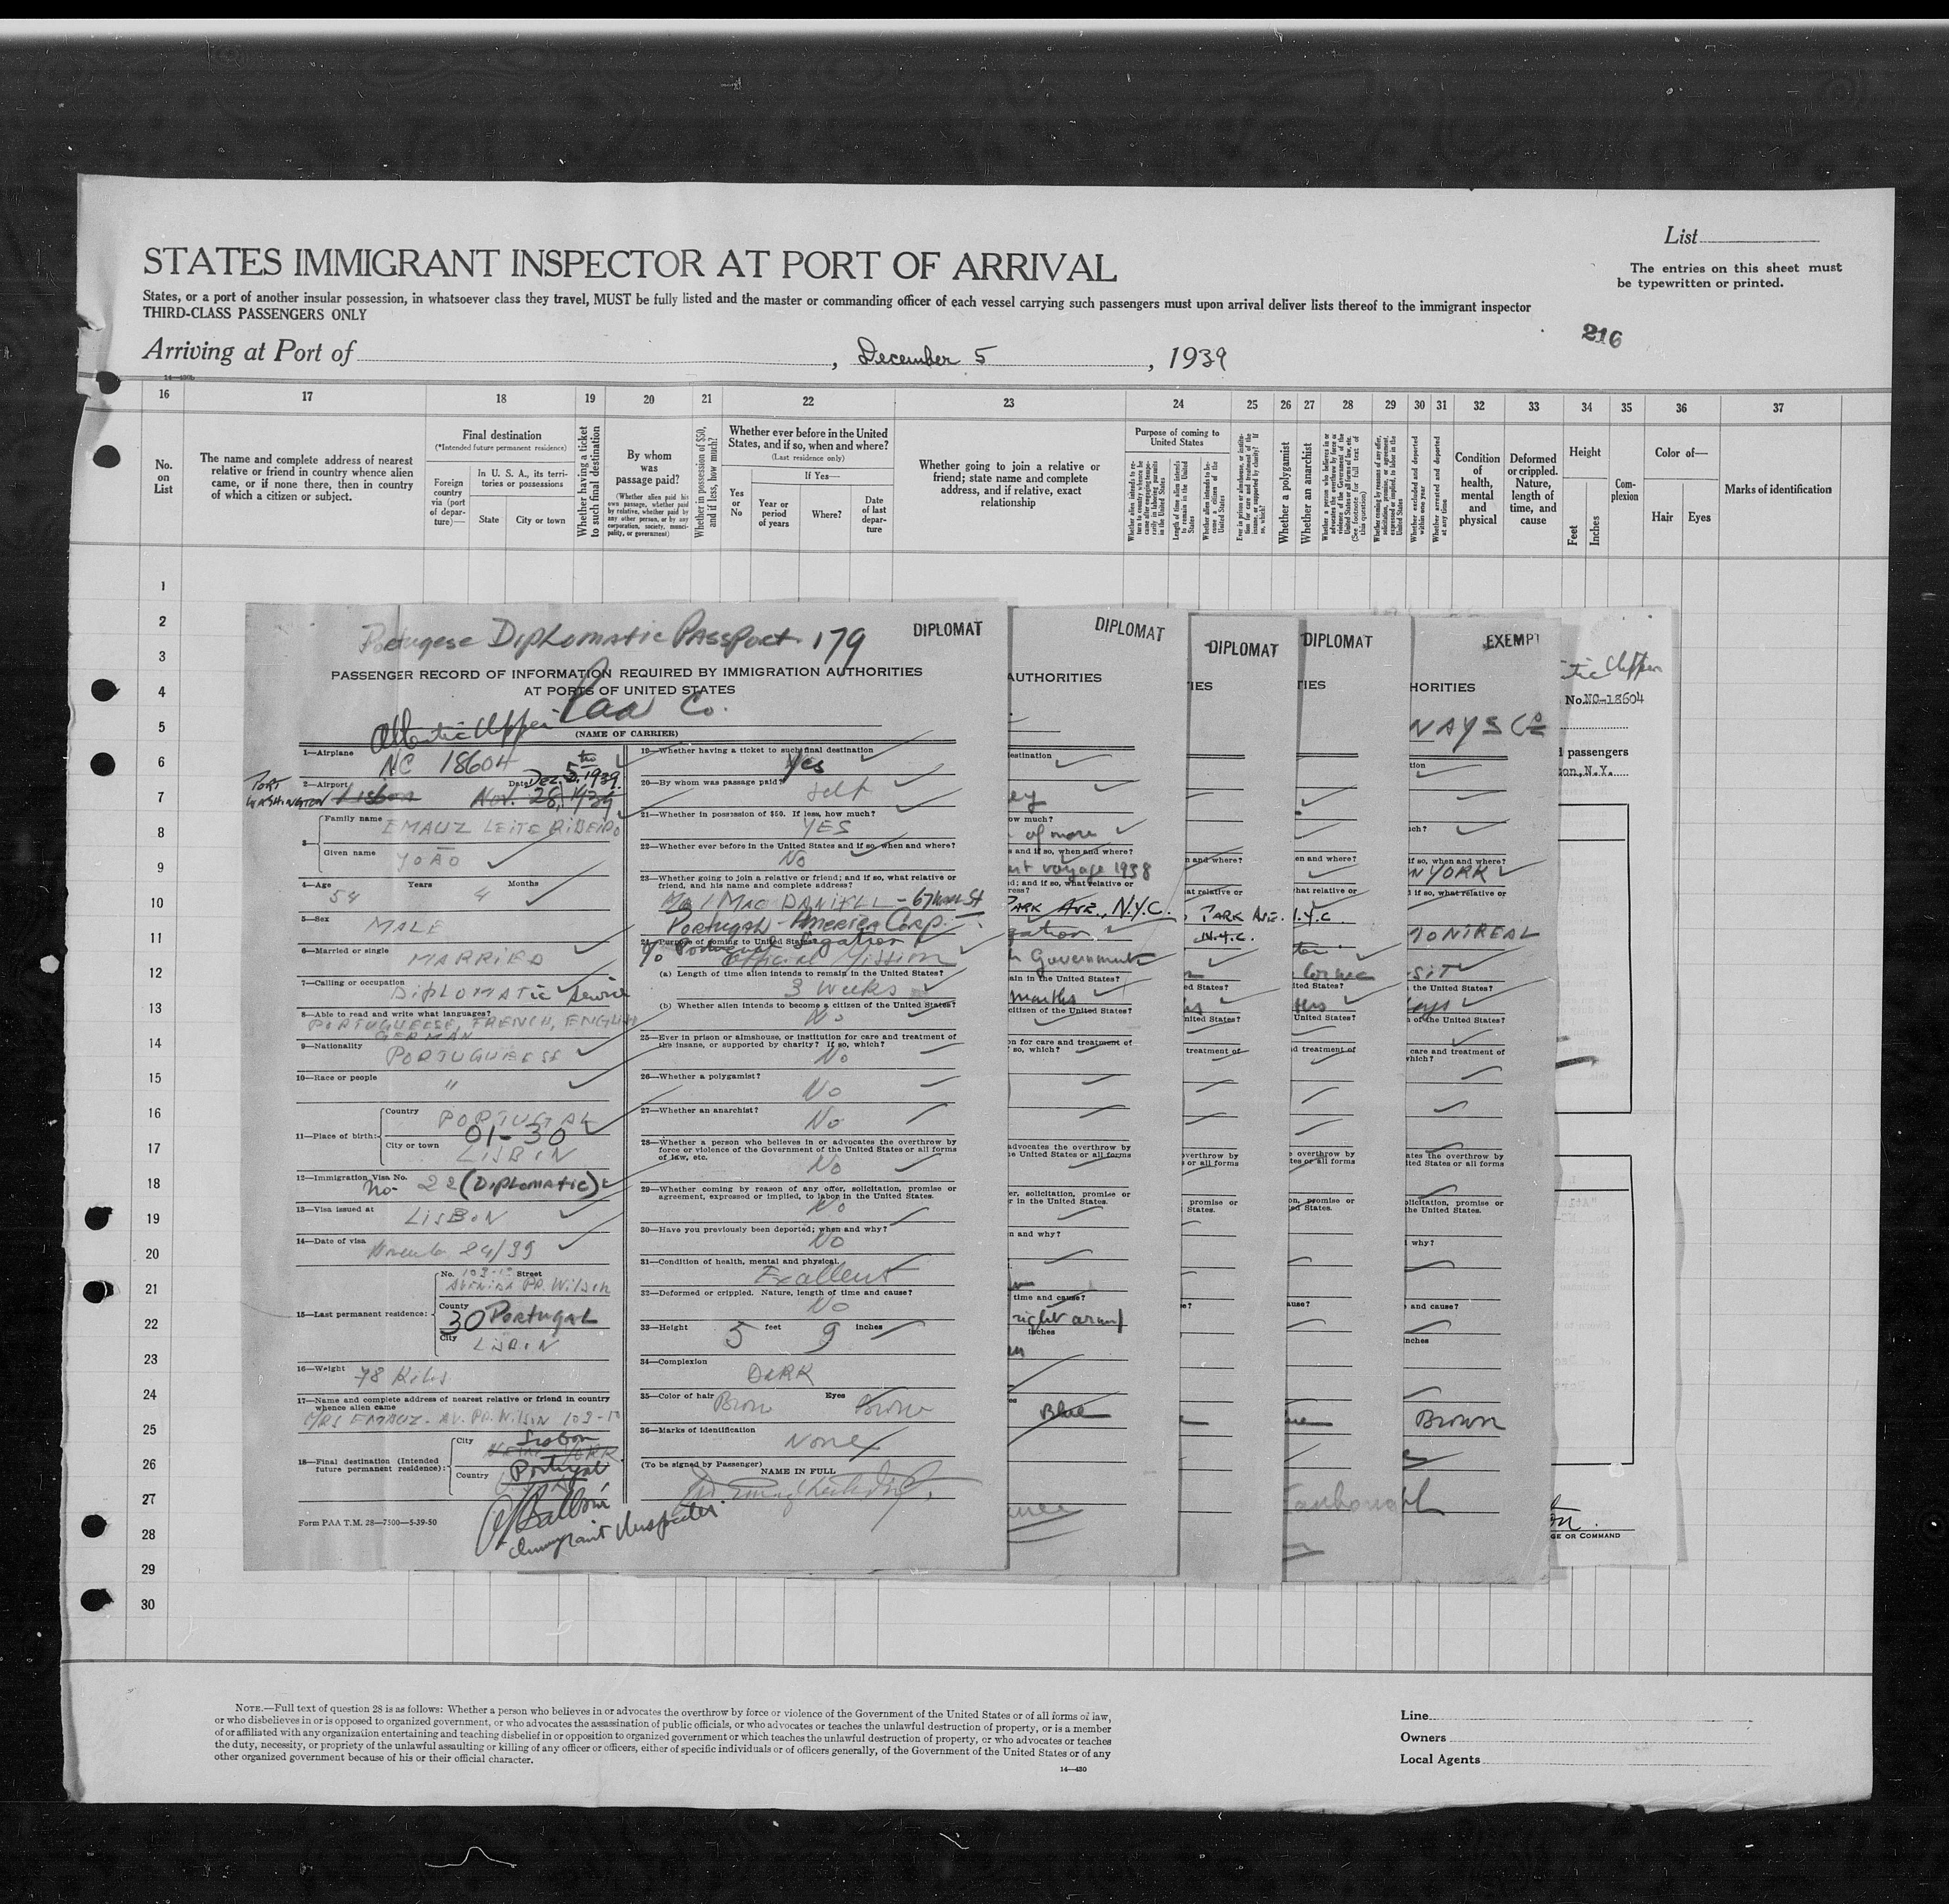 List
The entries on this sheet must
be typewritten or printed.
STATES IMMIGRANT INSPECTOR AT PORT OF ARRIVAL
States, or a port of another insular possession, in whatsoever class they travel, MUST be fully listed and the master or commanding officer of each vessel carrying such passengers must upon arrival deliver lists thereof to the immigrant inspector
THIRD-CLASS PASSENGERS ONLY
216
Arriving at Port of , December 5 , 1939
16 17 18 19 20 21 22 23 24 25 26 27 28 29 30 31 32 33 34 35 36 37
No.
on
List
The name and complete address of nearest
relative or friend in country whence alien
came, or if none there, then in country
of which a citizen or subject.
Final destination
(*Intended future permanent residence)
Foreign
country
via (port
of depar-
ture)—
In U. S. A., its terri-
tories or possessions
State
City or town
Whether having a ticket
to such final destination
By whom
was
passage paid?
(Whether alien paid his
own passage, whether paid
by relative, whether paid by
any other person, or by any
corporation, society, munici-
pality, or government)
Whether in possession of $50,
and if less, how much?
Whether ever before in the United
States, and if so, when and where?
(Last residence only)
Yes
or
No
If Yes—
Year or
period
of years
Where?
Date
of last
depar-
ture
Whether going to join a relative or
friend; state name and complete
address, and if relative, exact
relationship
Purpose of coming to
United States
Length of time alien intends
to remain in the United
States
Whether alien intends to be-
come a citizen of the
United States
Whether a polygamist
Whether an anarchist
Whether arrested and deported
at any time
Condition
of
health,
mental
and
physical
Deformed
or crippled.
Nature,
length of
time, and
cause
Height
Feet
Inches
Com-
plexion
Color of—
Hair
Eyes
Marks of identification
1
2
3
4
5
6
7
8
9
10
11
12
13
14
15
16
17
18
19
20
21
22
23
24
25
26
27
28
29
30
Portugese Diplomatic Passport 179
DIPLOMAT
PASSENGER RECORD OF INFORMATION REQUIRED BY IMMIGRATION AUTHORITIES
AT PORTS OF UNITED STATES
Atlantic Clipper Paa Co.
(NAME OF CARRIER)
1—Airplane NC 18604
2—Airport Lisbon Date Nov. 28, 1939
PORT
WASHINGTON
Dec. 5th 1939.
3— Family name EMAUZ LEITE RIBEIRO
Given name JOÃO
4—Age 54 Years 4 Months
5—Sex MALE
6—Married or single MARRIED
7—Calling or occupation DIPLOMATIC Service
8—Able to read and write what languages?
PORTUGUESE, FRENCH, ENGLISH
GERMAN
9—Nationality PORTUGUESE
10—Race or people "
11—Place of birth: Country PORTUGAL
01-30
City or town LISBON
12—Immigration Visa No.
No. 22 (Diplomatic)
13—Visa issued at LISBON
14—Date of visa November 24/39
15—Last permanent residence: No. 103-1º Street
AVENIDA PR. Wilson
County
30 Portugal
City LISBON
16—Weight 78 Kilos
17—Name and complete address of nearest relative or friend in country
whence alien came
MRS EMAUZ. AV. PR. WILSON 103-1º
18—Final destination (Intended
future permanent residence):
City Lisbon
NEW YORK
Country Portugal
Immigrant Inspector
Form PAA T.M. 28—7500—5-39-50
19—Whether having a ticket to such final destination
Yes
20—By whom was passage paid?
self
21—Whether in possession of $50. If less, how much?
YES
22—Whether ever before in the United States and if so, when and where?
No
23—Whether going to join a relative or friend; and if so, what relative or
friend, and his name and complete address?
MAC DANIELL - 67 Wall St
Portugal - America Corp.
24—Purpose of coming to United States?
c/o Portugal Legation
Official Mission
(a) Length of time alien intends to remain in the United States?
3 weeks
(b) Whether alien intends to become a citizen of the United States?
No
25—Ever in prison or almshouse, or institution for care and treatment of
the insane, or supported by charity? If so, which?
No
26—Whether a polygamist?
No
27—Whether an anarchist?
No
28—Whether a person who believes in or advocates the overthrow by
force or violence of the Government of the United States or all forms
of law, etc.
No
29—Whether coming by reason of any offer, solicitation, promise or
agreement, expressed or implied, to labor in the United States.
No
30—Have you previously been deported; when and why?
No
31—Condition of health, mental and physical.
Excellent
32—Deformed or crippled. Nature, length of time and cause?
No
33—Height 5 feet 9 inches
34—Complexion
DARK
35—Color of hair Brown Eyes Brown
36—Marks of identification
None
(To be signed by Passenger)
NAME IN FULL
DIPLOMAT
AUTHORITIES
estination
ow much?
of more
s and if so, when and where?
voyage 1938
d; and if so, what relative or
ress?
PARK AVE., N.Y.C.
gation
Government
ain in the United States?
months
citizen of the United States?
on for care and treatment of
so, which?
advocates the overthrow by
e United States or all forms
er, solicitation, promise or
r in the United States.
n and why?
time and cause?
right arm
inches
Blue
DIPLOMAT
IES
n and where?
at relative or
PARK AVE.
N.Y.C.
ed States?
nited States?
treatment of
overthrow by
or all forms
promise or
States.
e?
DIPLOMAT
TIES
en and where?
hat relative or
N.Y.C.
d States?
United States?
d treatment of
e overthrow by
tes or all forms
on, promise or
ed States.
ause?
EXEMPT
HORITIES
WAYS Co
tion
uch?
if so, when and where?
W YORK
if so, what relative or
MONTREAL
SIT
the United States?
days
n of the United States?
care and treatment of
which?
ates the overthrow by
ited States or all forms
olicitation, promise or
the United States.
why?
and cause?
inches
Brown
tic Clipper
No. NC-18604
d passengers
ton, N.Y.
GE OR COMMAND
NOTE.—Full text of question 28 is as follows: Whether a person who believes in or advocates the overthrow by force or violence of the Government of the United States or of all forms of law,
or who disbelieves in or is opposed to organized government, or who advocates the assassination of public officials, or who advocates or teaches the unlawful destruction of property, or is a member
of or affiliated with any organization entertaining and teaching disbelief in or opposition to organized government or which teaches the unlawful destruction of property, or who advocates or teaches
the duty, necessity, or propriety of the unlawful assaulting or killing of any officer or officers, either of specific individuals or of officers generally, of the Government of the United States or of any
other organized government because of his or their official character.
14—430
Line
Owners
Local Agents